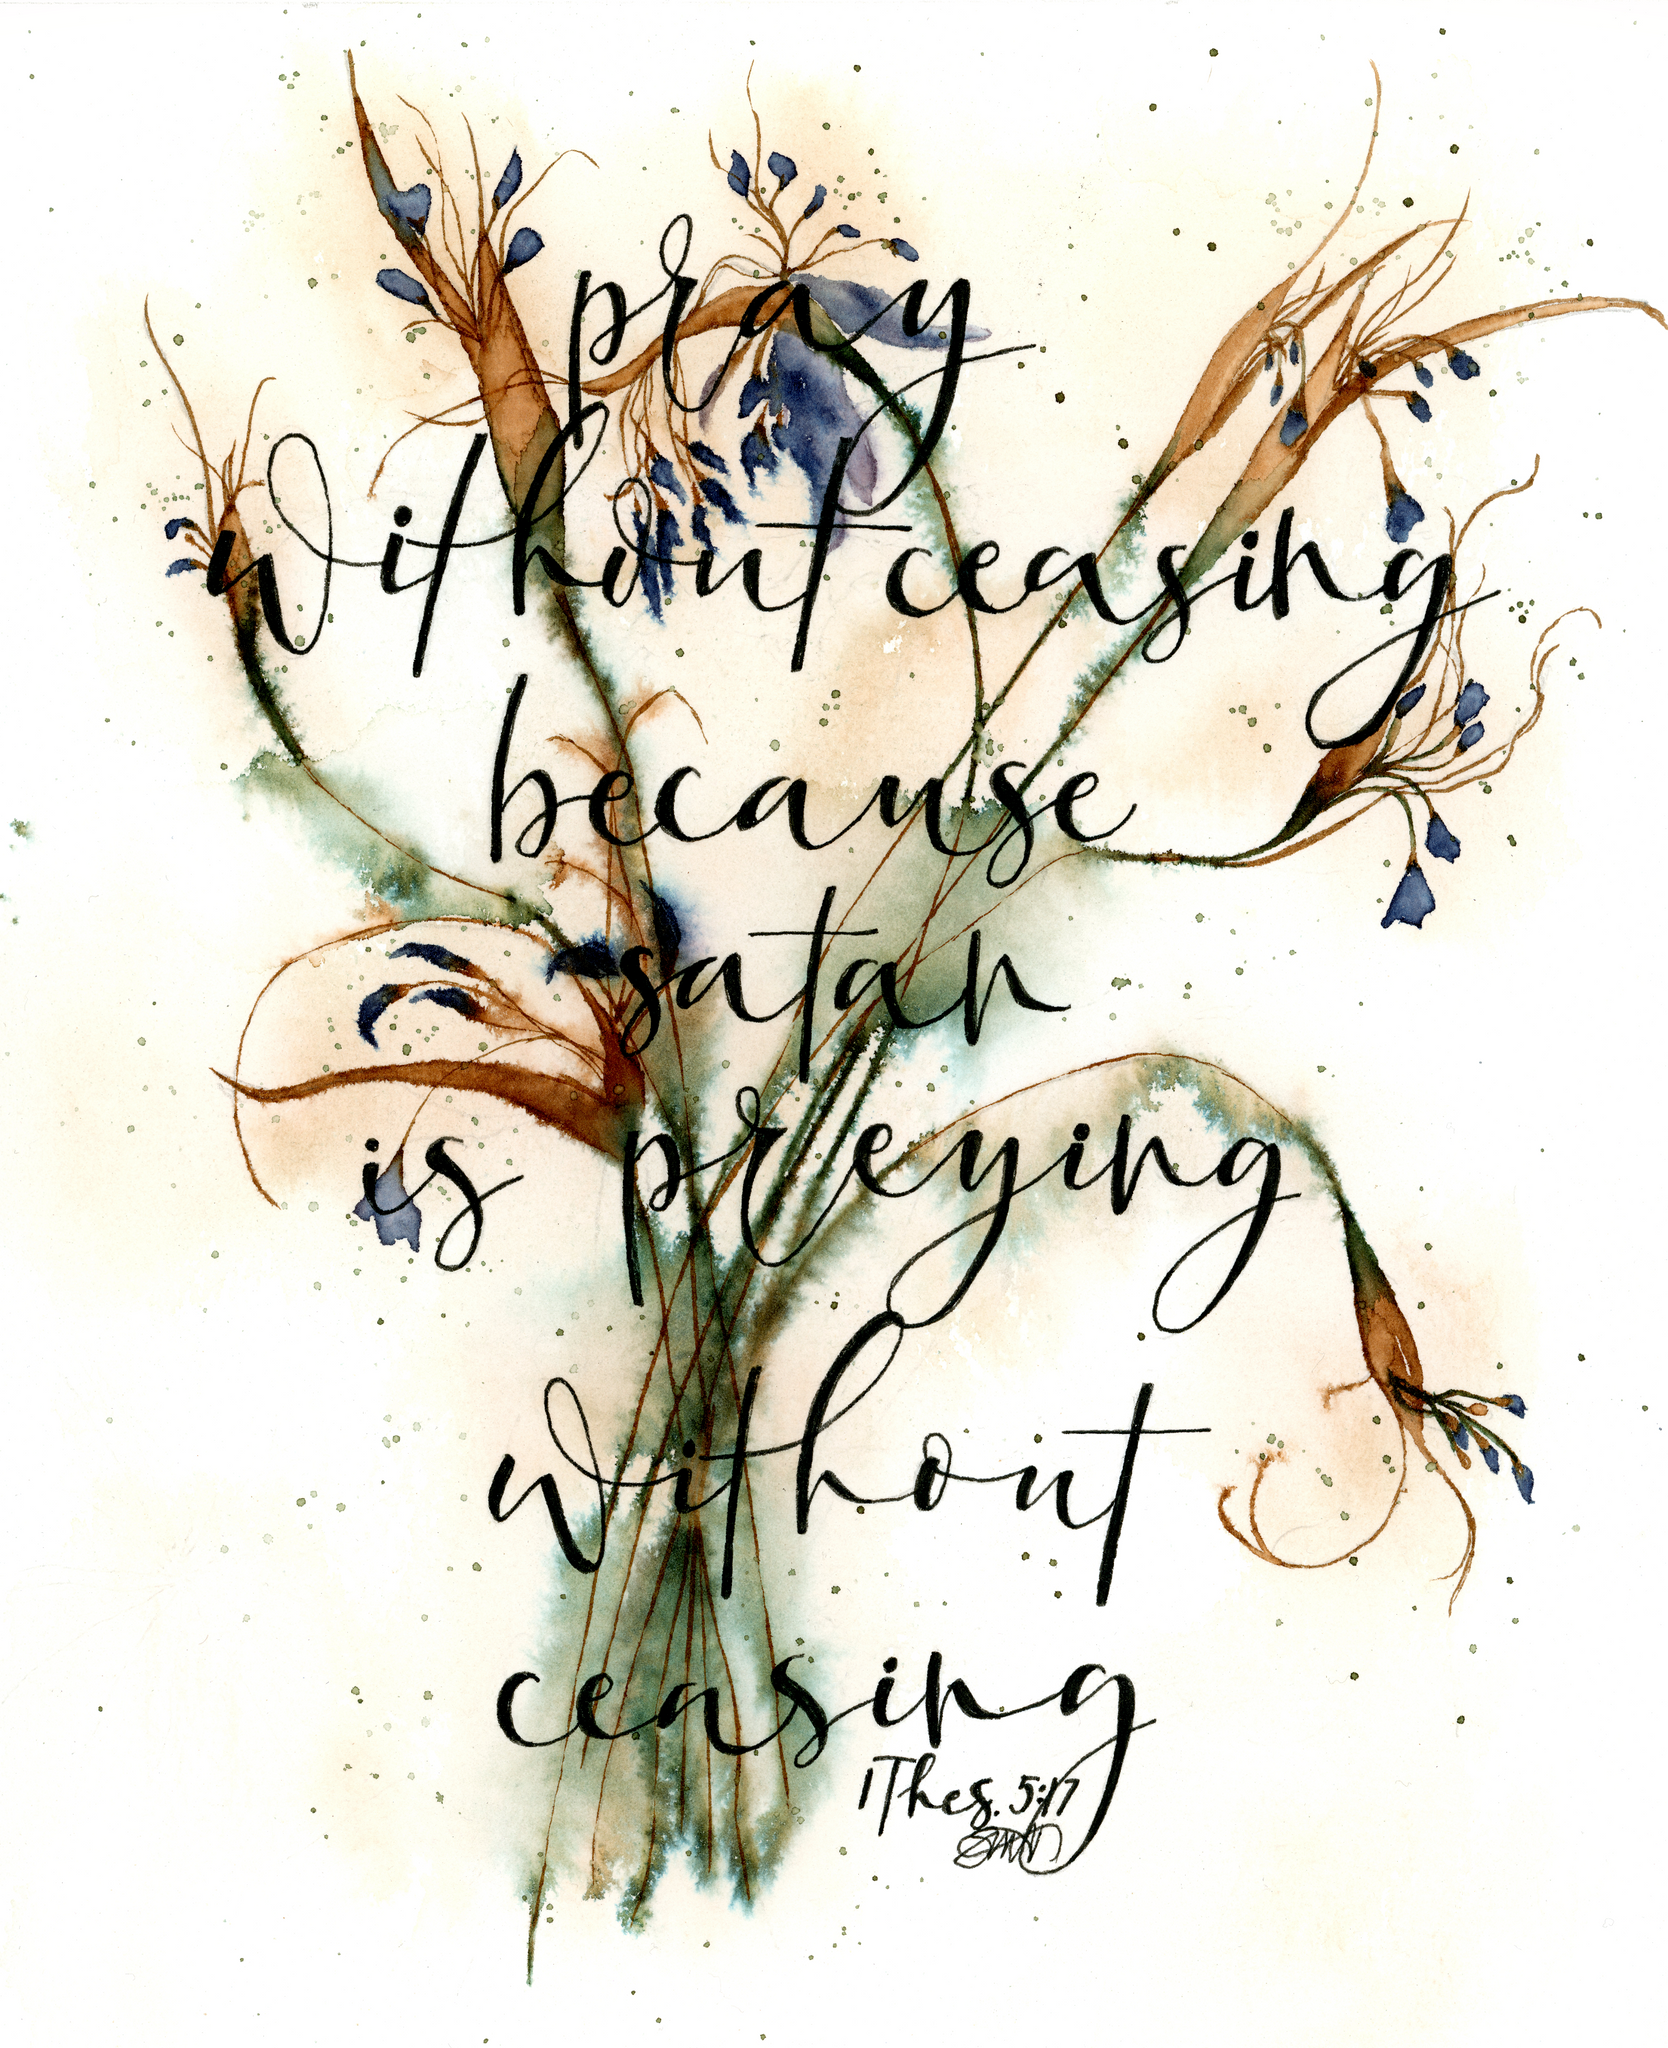 pray
without ceasing
because
satan
is preying
without
ceasing
1 Thes. 5:17